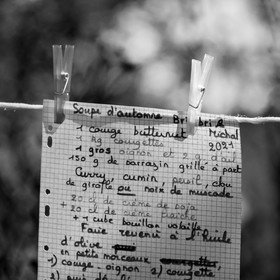 Soupe d'automne Bri bri &
Michal
1 courge butternut 2021
1 kg courgettes
1 gros oignon et 2 d'ail
150 g de sarrasin grillé à part
Curry, cumin, pavot, clou
de girofle ou noix de muscade
+ 20 cl de crème de soja
+ 20 cl de crème fraîche
+ 1 cube bouillon volaille
Faire revenu à l'huile
d'olive
en petits morceaux courgettes
1) courge - oignon 2) courgette